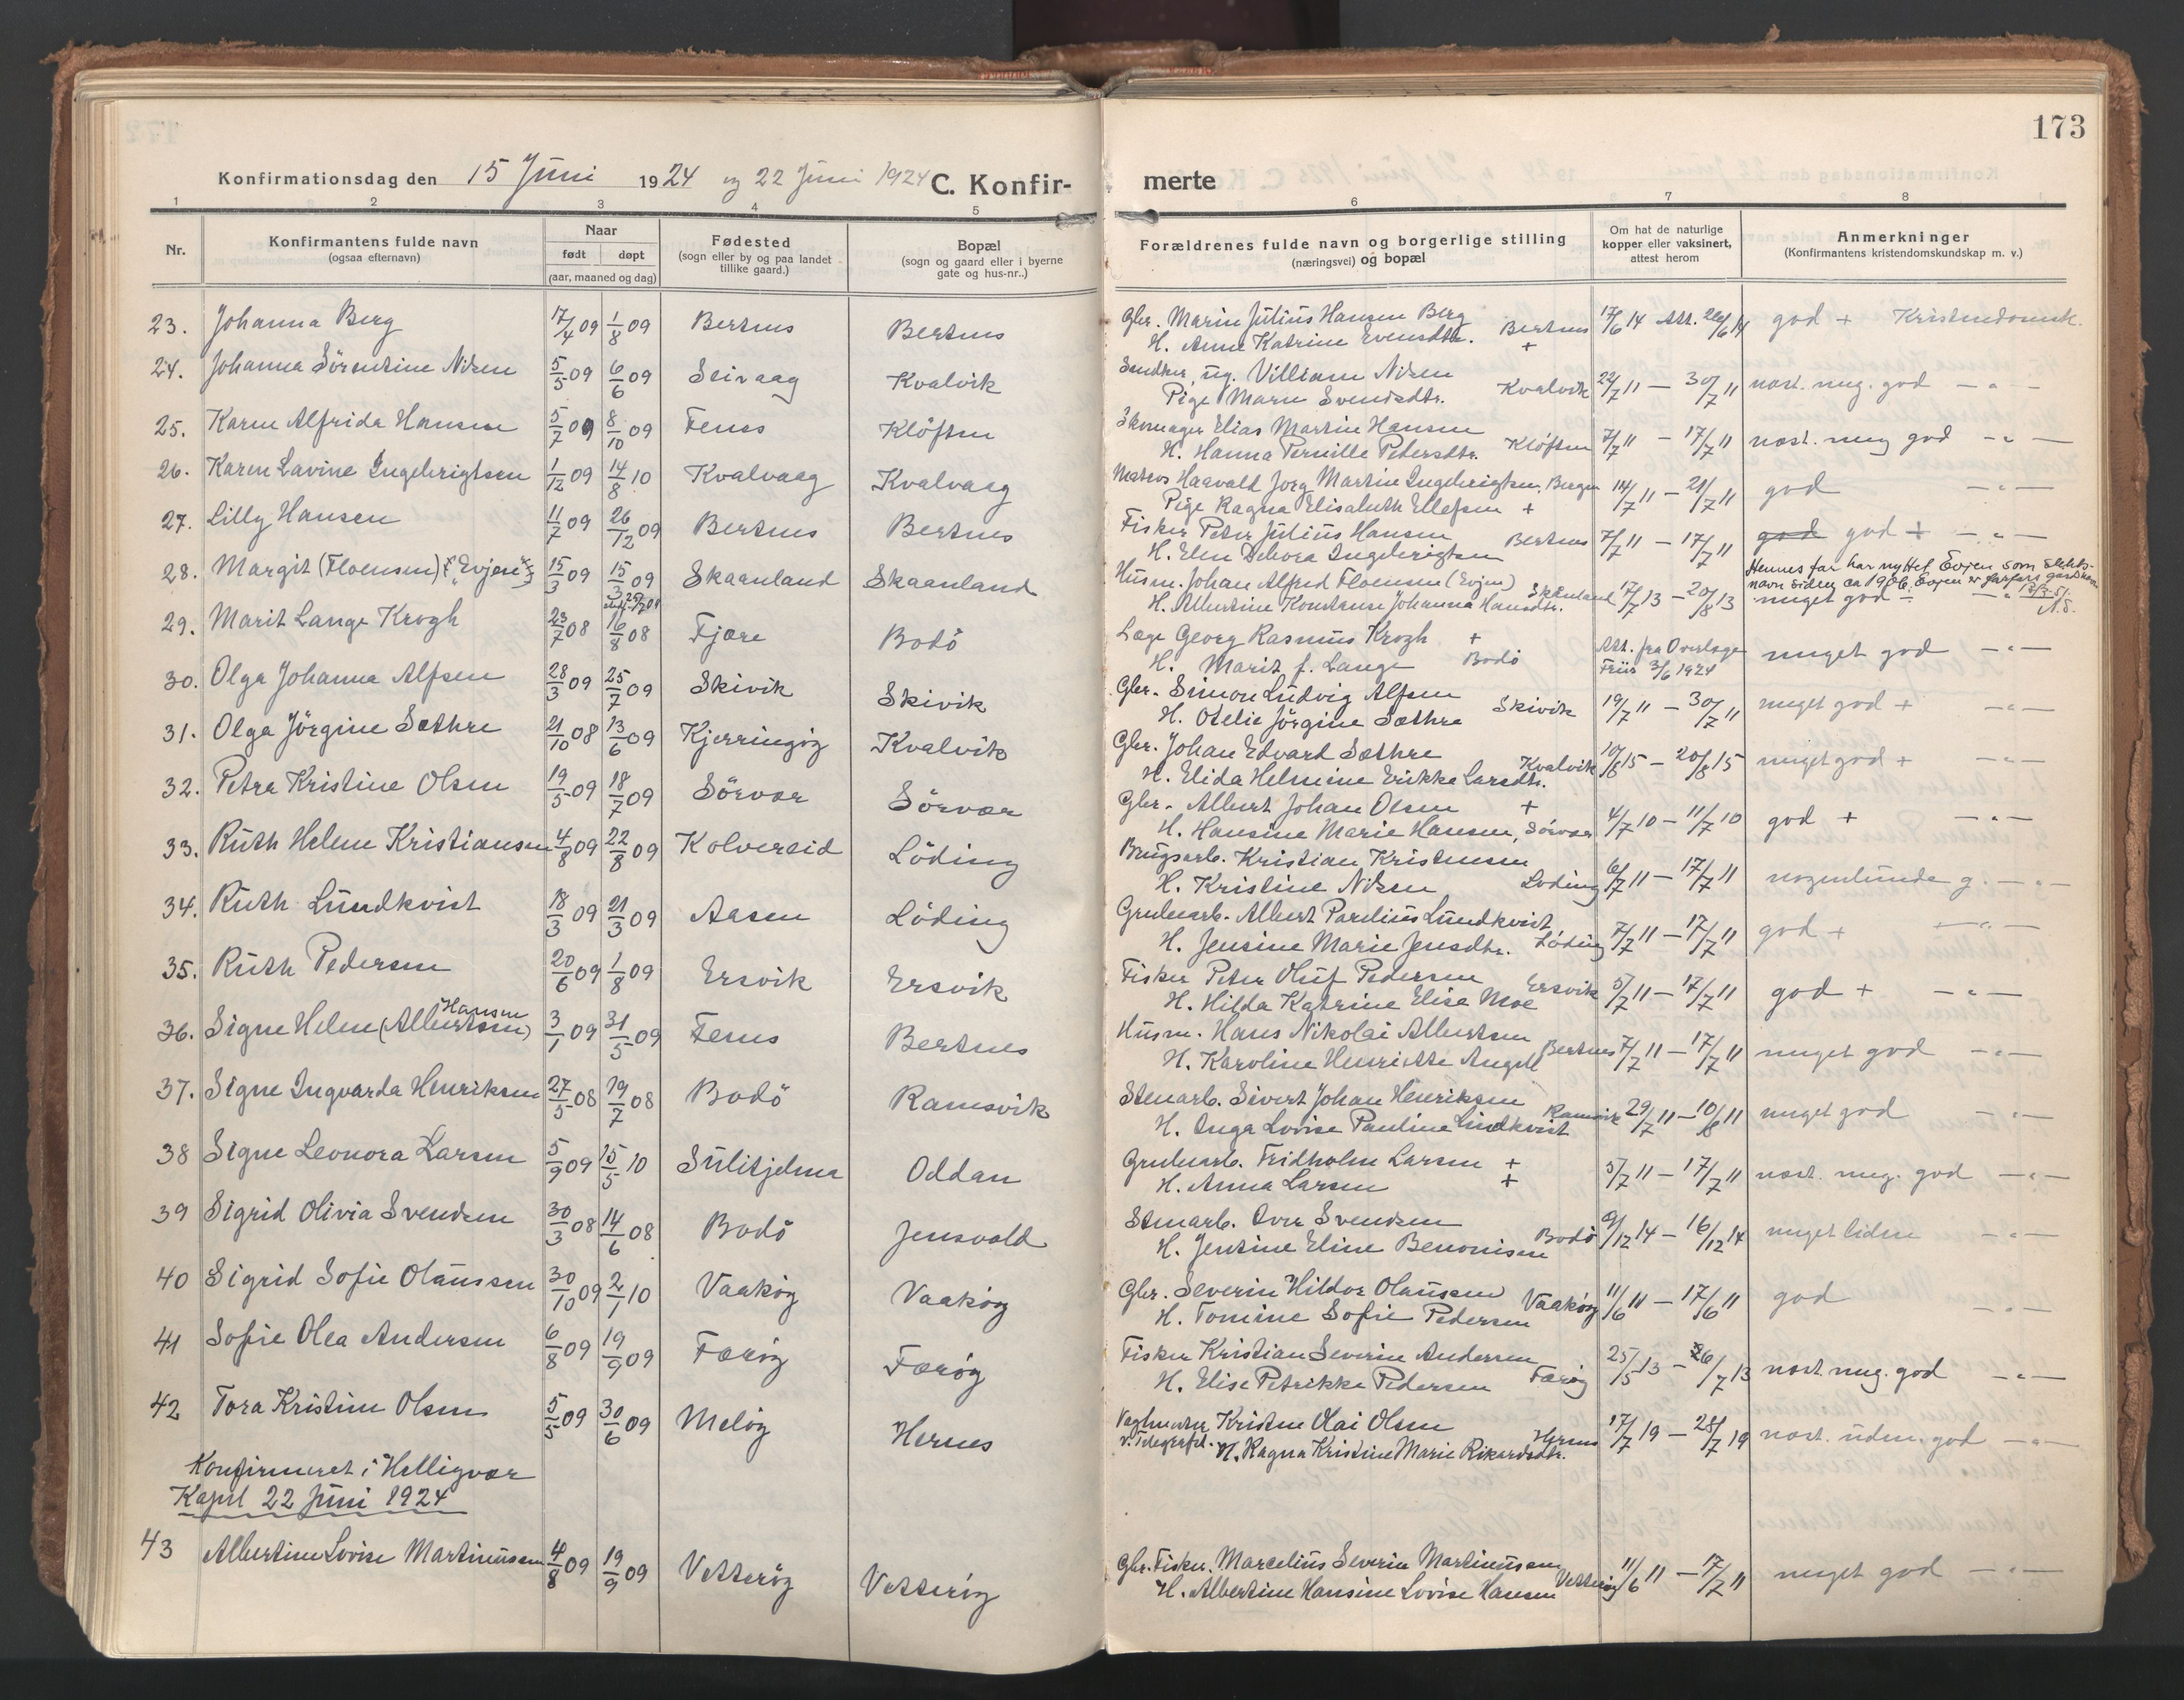 173
Konfirmationsdag den 15 Juni 1924 og 22 Juni 1924 C. Konfir-
merte
1 2 3 4 5 6 7 8
Nr.
Konfirmantens fulde navn
(ogsaa efternavn)
Naar
født døpt
(aar, maaned og dag)
Fødested
(sogn eller by og paa landet
tillike gaard.)
Bopæl
(sogn og gaard eller i byerne
gate og hus-nr..)
Forældrenes fulde navn og borgerlige stilling
(næringsvei) og bopæl
Om hat de naturlige
kopper eller vaksinert,
attest herom
Anmerkninger
(Konfirmantens kristendomskundskap m. v.)
23. Johanna Berg 17/4 09 1/8 09 Bertnes Bertnes
Gbr. Marin Julius Hansen Berg
H. Anne Katrine Evensdtr. Bertnes +
17/6 14 Att. 26/6 14 god + Kristendomsk.
24. Johanna Sörentine Nilsen 5/5 09 6/6 09 Seivaag Kvalvik
ug. Villiam Nilsen
Pige Maren Svendsdtr. Kvalvik
22/7 11 — 30/7 11 næst. meg. god — " —
25. Karen Alfrida Hansen 5/7 09 8/10 09 Fenes Klöften
Skomager Elias Martin Hansen
H. Hanna Pernille Pedersdtr. Klöften
7/7 11 — 17/7 11 næst. meg god — " —
26. Karen Lavine Ingebrigtsen 1/12 09 14/8 10 Kvalvaag Kvalvaag
Matros Haavald Jorg Martin Ingebrigtsen, Bergen
Pige Ragna Elisabeth Ellefsen +
14/7 11 — 21/7 11 god — " —
27. Lilly Hansen 11/7 09 26/12 09 Bertnes Bertnes
Fisker Peter Julius Hansen
H. Elen Debora Ingebrigtsen Bertnes
7/7 11 — 17/7 11 god god + — " —
28. Margit (Floensen) "Evjen" 15/3 09 15/5 09 Skaanland Skaanland
Husm. Johan Alfred Floensen (Evjen)
H. Albertine Konstanse Johanna Hansdtr. Skånland
17/7 13 — 20/8 13
Hennes far har nyttet Evjen som slekts-
navn siden ca 1906. Evjen er farfars gardsnavn
meget god — " —
29. Marit Lange Krogh 23/7 08 16/8 08 Fjære Bodö
Læge Georg Rasmus Krogh +
H. Marit f. Lange Bodö
Att. fra Overlæge
Friis 3/6 1924 meget god — " —
30. Olga Johanna Alfsen 28/3 09 25/7 09 Skivik Skivik
Gbr. Simon Ludvig Alfsen
H. Otelie Jörgine Sæthre Skivik
19/7 11 — 30/7 11 meget god + — " —
31. Olga Jörgine Sæthre 21/10 08 13/6 09 Kjerringöy Kvalvik
Gbr. Johan Edvard Sæthre
H. Elida Helmine Erikke Larsdtr. Kvalvik
10/8 15 — 20/8 15 meget god + — " —
32. Petra Kristine Olsen 19/5 09 18/7 09 Sörvær Sörvær
Gbr. Albert Johan Olsen +
H. Hansine Marie Hansen, Sörvær
4/7 10 — 11/7 10 god + — " —
33. Ruth Helene Kristiansen 4/8 09 22/8 09 Kolvereid Löding
Brugsarb. Kristian Kristensen
H. Kristine Nilsen Löding
6/7 11 — 17/7 11 nogenlunde g. — " —
34. Ruth Lundkvist 18/3 09 21/3 09 Aasen Löding
Grubearb. Albert Parelius Lundkvist
H. Jensine Marie Jensdtr. Löding
7/7 11 — 17/7 11 god + — " —
35. Ruth Pedersen 20/6 09 1/8 09 Ersvik Ersvik
Fisker Peter Oluf Pedersen
H. Hilda Katrine Elise Moe Ersvik
5/7 11 — 17/7 11 god + — " —
36. Signe Helene (Albertsen) Hansen 3/1 09 31/5 09 Fenes Bertnes
Husm. Hans Nikolai Albertsen
H. Karoline Henriette Angell Bertnes
7/7 11 — 17/7 11 meget god — " —
37. Signe Ingvarda Henriksen 27/5 08 19/7 08 Bodö Ramsvik
Stenarb. Sivert Johan Henriksen
H. Inga Lovise Pauline Lindkvist Ramsvik
29/7 11 — 10/8 11 meget god — " —
38 Signe Leonora Larsen 5/9 09 15/5 10 Sulitjelma Oddan
Grubearb. Fridholm Larsen +
H. Anna Larsen +
5/7 11 — 17/7 11 næst. meg. god — " —
39 Sigrid Olivia Svendsen 30/3 08 14/6 08 Bodö Jensvold
Stenarb. Over Svendsen
H. Jentine Eline Benonisen Bodö
9/12 14 — 16/12 14 meget liden — " —
40 Sigrid Sofie Olaussen 30/10 09 2/1 10 Vaaköy Vaaköy
Gbr. Severin Hildor Olaussen
H. Tomine Sofie Pedersen Vaaköy
11/6 11 — 17/6 11 god — " —
41 Sofie Olea Andersen 6/8 09 19/9 09 Faröy Faröy
Fisker Kristian Severin Andersen
H. Elise Petrikke Pedersen Faröy
25/5 13 — 26/7 13 næst. meg. god — " —
42 Tora Kristine Olsen 5/5 09 30/6 09 Melöy Hernes
Vagtmester Kristen Olai Olsen
v. Telegrafst. H. Ragna Kristine Marie Rikardsdtr. Hernes
17/7 19 — 28/7 19 næst. uden. god — " —
Konfirmeret i Helligvær
Kapel 22 Juni 1924
43 Albertine Lovise Martinussen 4/8 09 19/9 09 Vetteröy Vetteröy
Gbr. Fisker. Marcelius Severin Martinussen
H. Albertine Hansine Lovise Hansen Vetteröy
11/6 11 — 17/7 11 meget god — " —